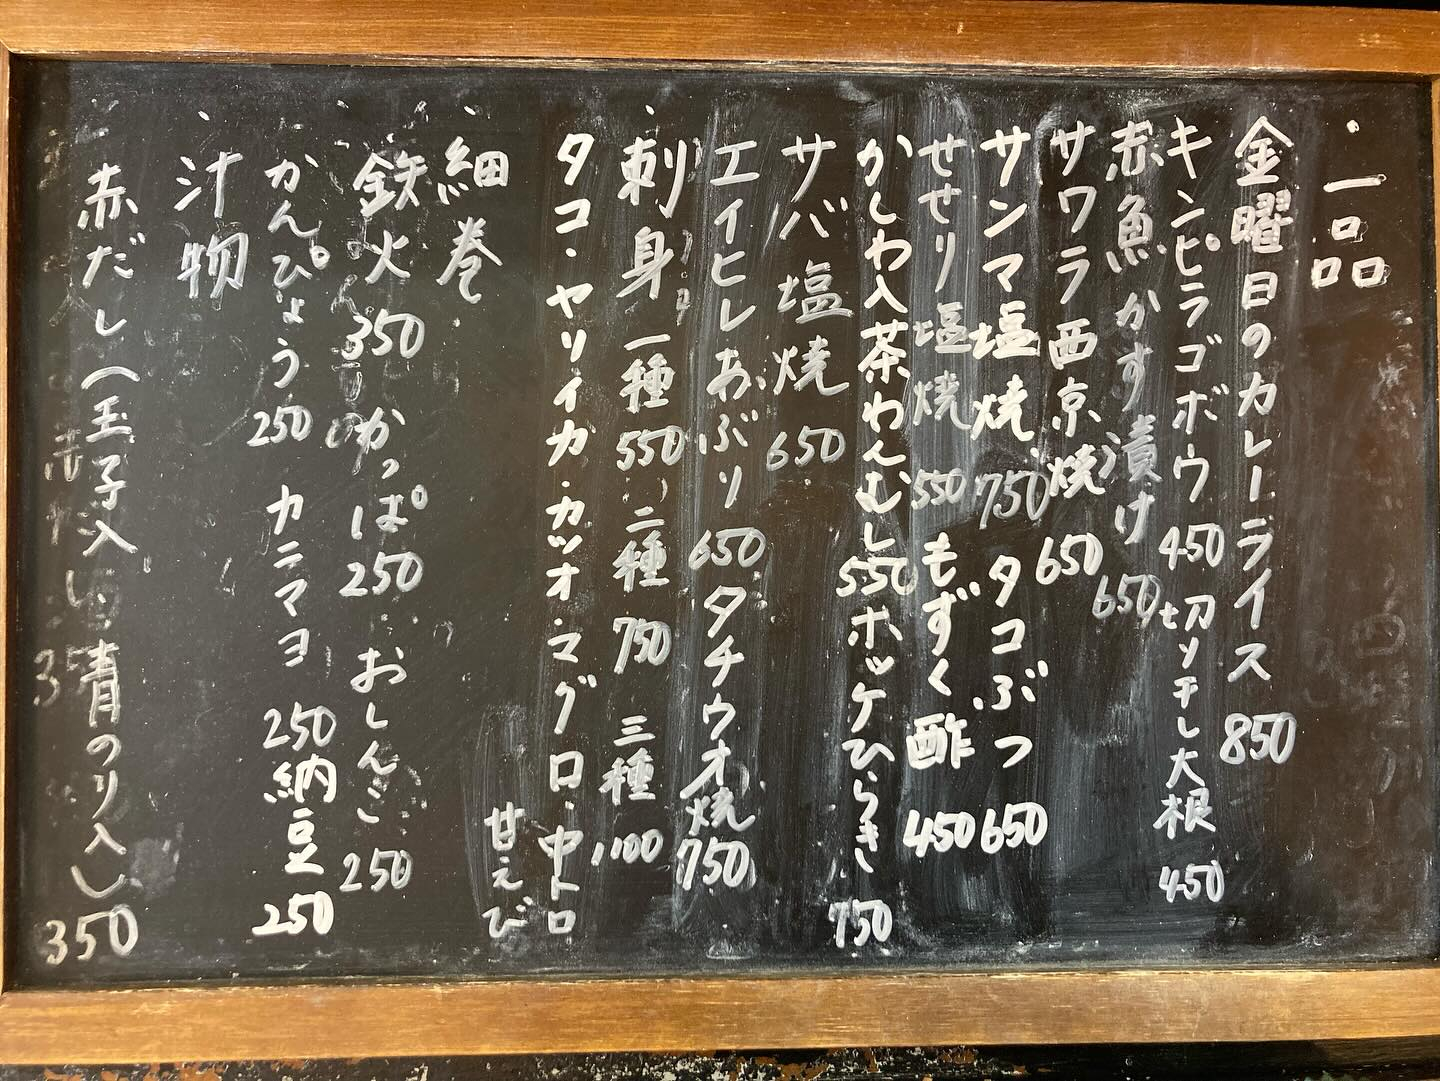 ・一品
金曜日のカレーライス 850
キンピラゴボウ 450 切り干し大根 450
赤魚かす漬け 650
サワラ西京焼 650
サンマ塩焼 750 タコぶつ 650
せせり塩焼 550 もずく酢 450
かしわ入茶わんむし 550 ホッケひらき 750
サバ塩焼 650
エイヒレあぶり 650 タチウオ焼 750
・刺身 一種 550 二種 750 三種 1,100
タコ・ヤリイカ・カツオ・マグロ・中トロ
甘えび
・細巻
鉄火 350 かっぱ 250 おしんこ 250
かんぴょう 250 カニマヨ 250 納豆 250
・汁物
赤だし(玉子入 青のり入) 350